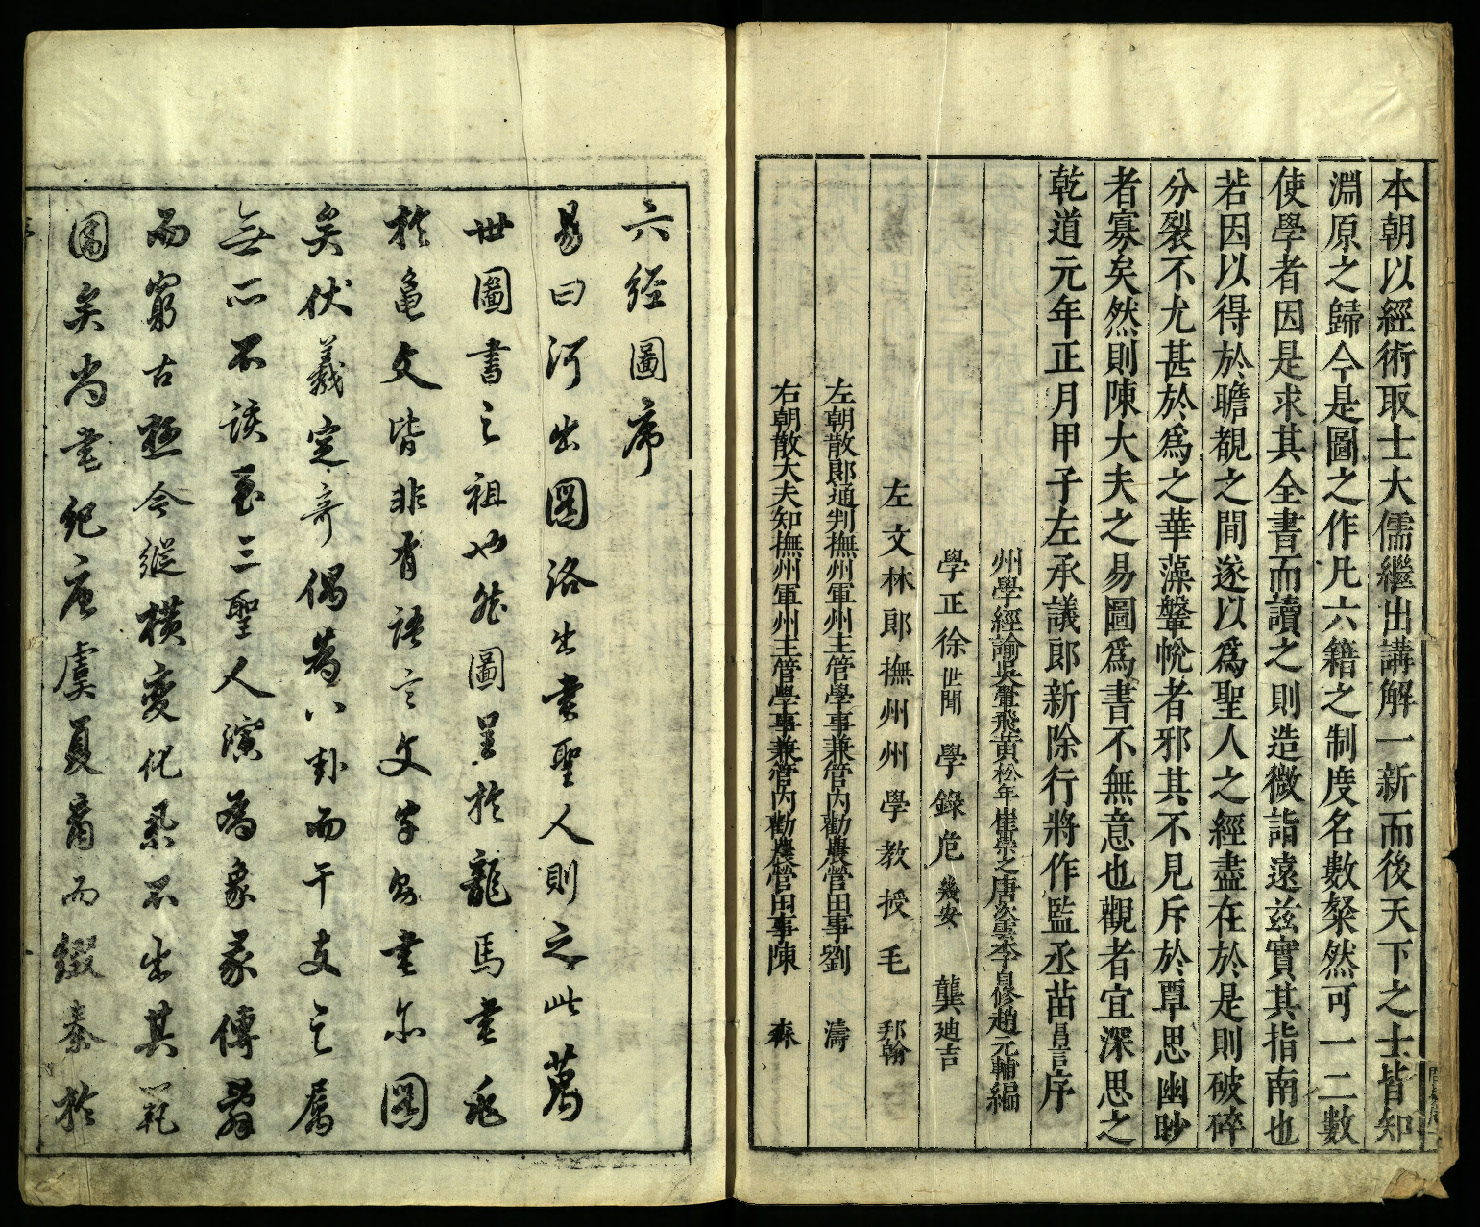 本朝以經術取士大儒繼出講解一新而後天下之士皆知
淵原之歸今是圖之作凡六籍之制度名數粲然可一二數
使學者因是求其全書而讀之則造微詣遠兹實其指南也
若因以得於瞻覩之間遂以爲聖人之經盡在於是則破碎
分裂不尤甚於爲之華藻鞶帨者邪其不見斥於覃思幽眇
者寡矣然則陳大夫之易圖爲書不無意也觀者宜深思之
乾道元年正月甲子左承議郎新除行將作監丞苗昌言序
州學經諭吳翬飛黄松年崔崇之唐次雲李自修趙元輔編
學正徐世聞 學錄危幾安 龔廸吉
左文林郎撫州州學教授毛邦翰
左朝散郎通判撫州軍州主管學事兼管內勸農營田事劉濤
右朝散大夫知撫州軍州主管學事兼管內勸農營田事陳森
六經圖序
易曰河出圖洛出書聖人則之此萬
世圖書之祖也然圖呈於龍馬書兆
於龜文皆非有語言文字如書尔圖
矣伏羲定奇偶爲八卦而干支之屬
無所不該至三聖人演爲象彖傳翼
而窮古極今縱橫變化衆不出其範
圍矣尚書紀唐虞夏商而綴秦於